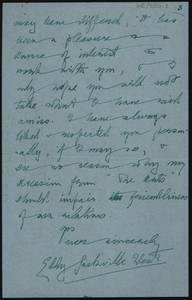 may have differed, it has
been a pleasure & a
source of interest to
work with you, & I
only hope you will not
take what I have said
amiss. I have always
liked & respected you person-
ally, if I may so, &
see no reason why my
secession from "The Arts"
should impair the friendliness
of our relations.
Yours sincerely
Eddy Sackville West